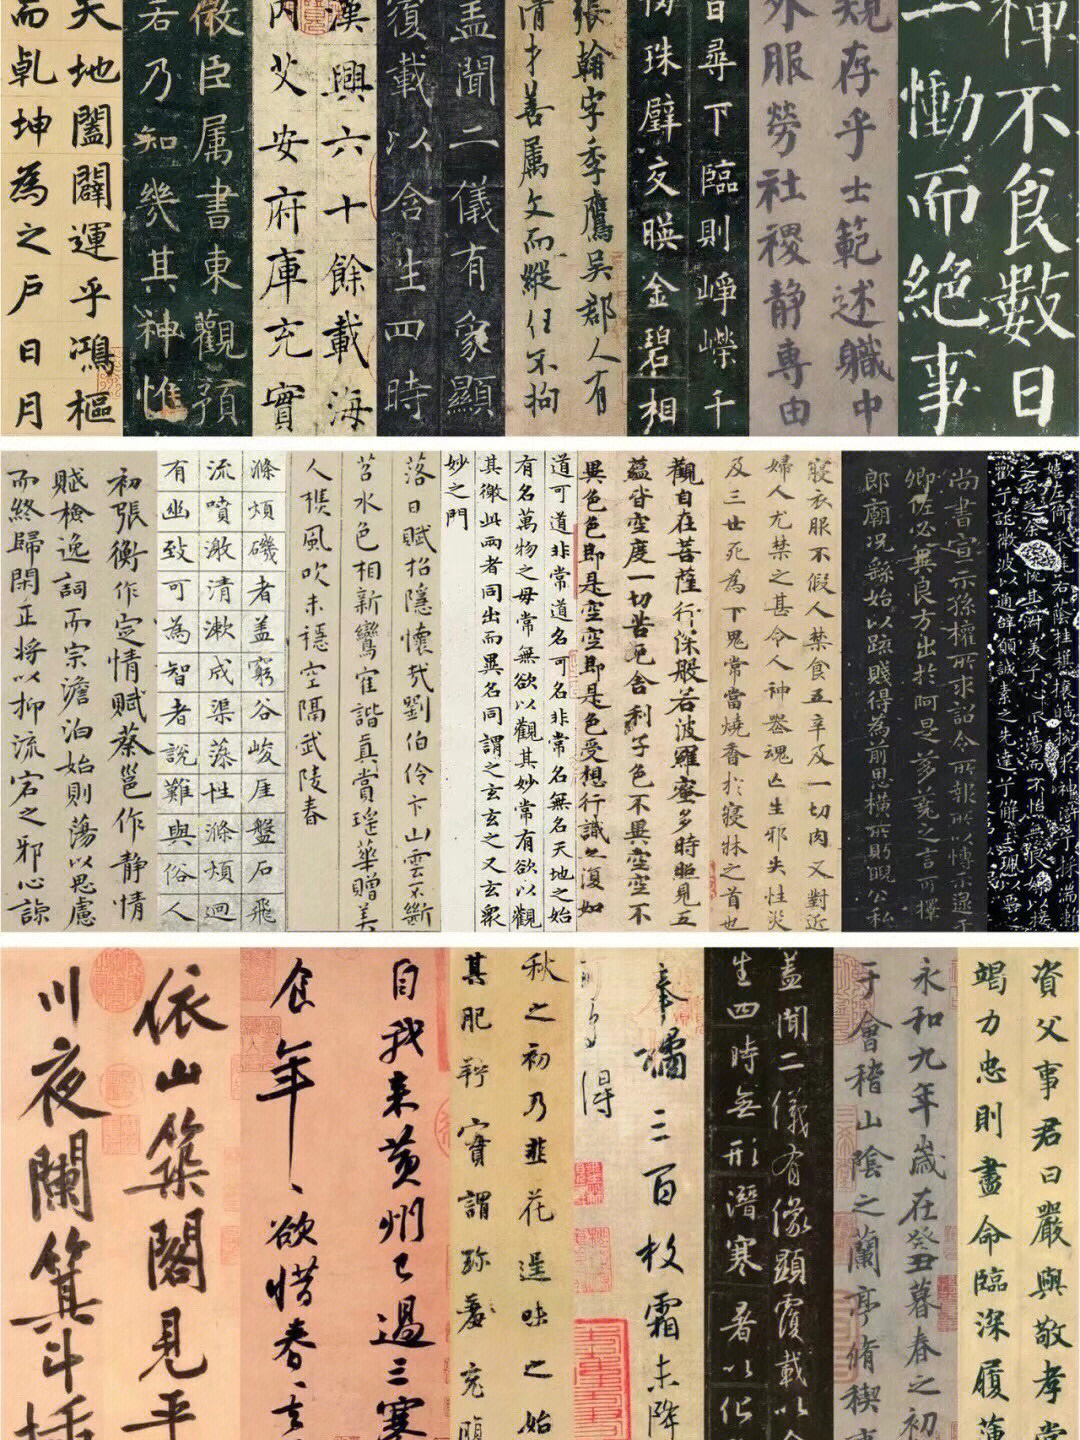 禪不食數日
一慟而絕事
規存乎士範述職中
外服勞社稷靜專由
日尋下臨則崢嶸千
傍珠璧交暎金碧相
張翰字季鷹吳郡人有
清才善属文而縱任不拘
盖聞二儀有象顯
覆載以含生四時
漢興六十餘載海
内艾安府庫充實
儆臣属書東觀預
若乃知幾其神惟
天地闔闢運乎鴻樞
而乹坤為之户日月
尚書宣示孫權所求詔令所報所以博示逯于
卿佐必冀良方出於阿是芻蕘之言可擇
郎廟況繇始以疎賤得為前恩橫所眄睨公私
寢衣服不假人禁食五辛及一切肉又對近
婦人尤禁之甚令人神喪魂亡生邪失性災
及三世死為下鬼常當燒香於寢牀之首也
觀自在菩薩行深般若波羅蜜多時照見五
蘊皆空度一切苦厄舍利子色不異空空不
異色色即是空空即是色受想行識亦復如
道可道非常道名可名非常名無名天地之始
有名萬物之母常無欲以觀其妙常有欲以觀
其徼此兩者同出而異名同謂之玄玄之又玄眾
妙之門
落日賦招隱懷哉劉伯伶卞山雲不斷
苕水色相新鸞寉諧真賞瑤華贈美
人樵風吹未穩空隔武陵春
滌煩磯者盖窮谷峻厓盤石飛
流噴激清漱成渠藻性滌煩迴
有幽致可為智者說難與俗人
初張衡作定情賦蔡邕作静情
賦檢逸詞而宗澹泊始則蕩以思慮
而終歸閑正將以抑流宕之邪心諒
資父事君曰嚴與敬孝當
竭力忠則盡命臨深履薄
永和九年歲在癸丑暮春之初
于會稽山陰之蘭亭脩稧事
盖聞二儀有像顯覆載以含
生四時無形潛寒暑以化
奉橘三百枚霜未降
可多得
秋之初乃韭花逞味之始
其肥羜實謂珎羞充腹
自我来黄州已過三寒
食年、欲惜春、去
依山築閣見平
川夜闌箕斗插